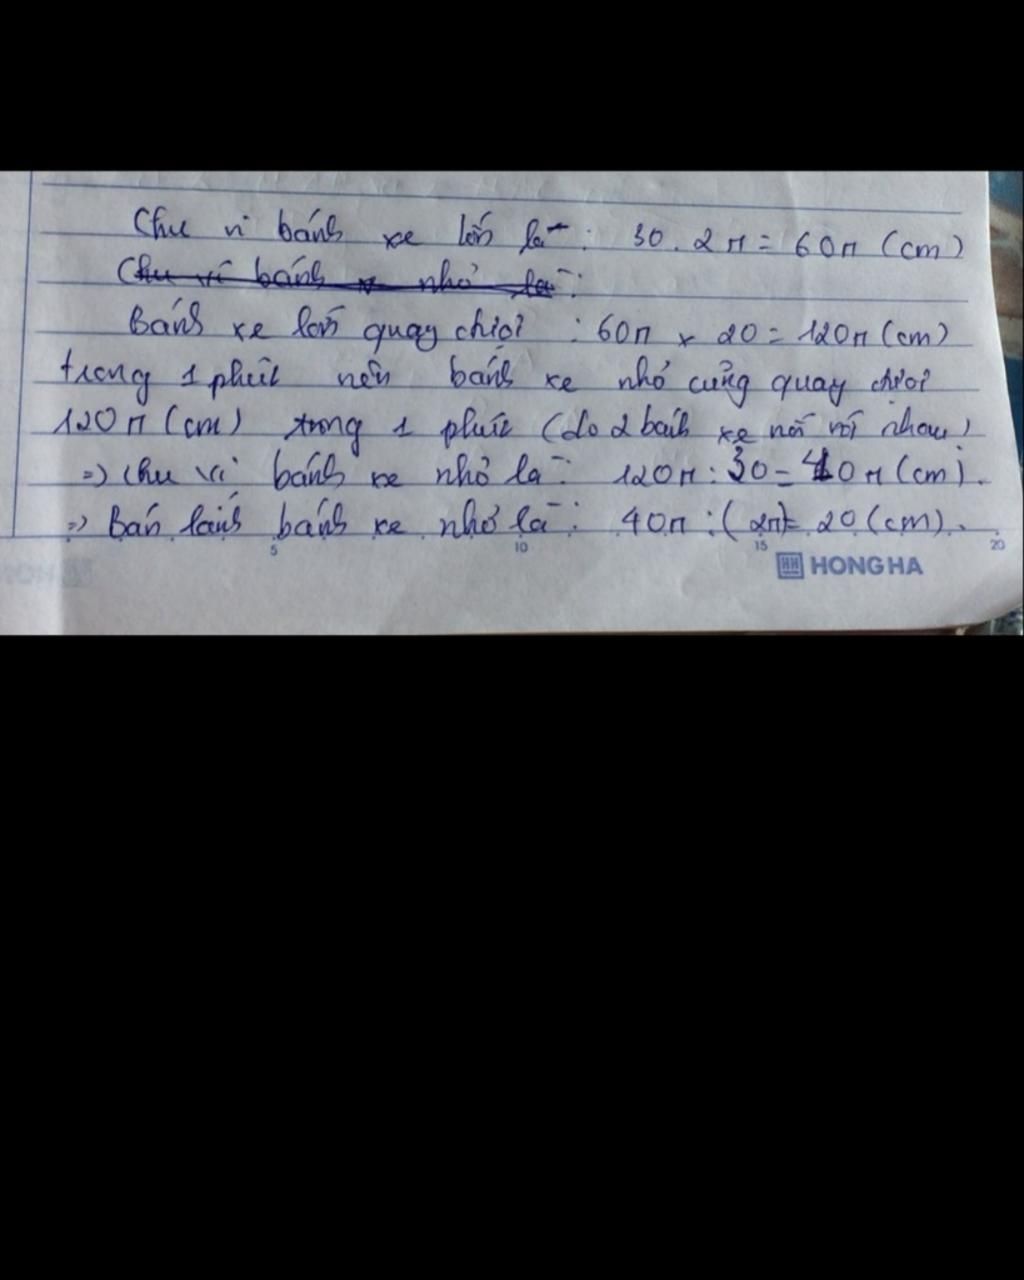 Chu vi bánh xe lớn là: 30.2π = 60π (cm)
Chu vi bánh xe nhỏ là:
Bánh xe lớn quay được: 60π x 20 = 120π (cm)
trong 1 phút nên bánh xe nhỏ cũng quay được
120π (cm) trong 1 phút (do 2 bánh xe nối với nhau)
=> Chu vi bánh xe nhỏ là: 120π : 30 = 40π (cm).
=> Bán kính bánh xe nhỏ là: 40π : (2π) = 20 (cm).
5 10 15 20
HH HONG HA